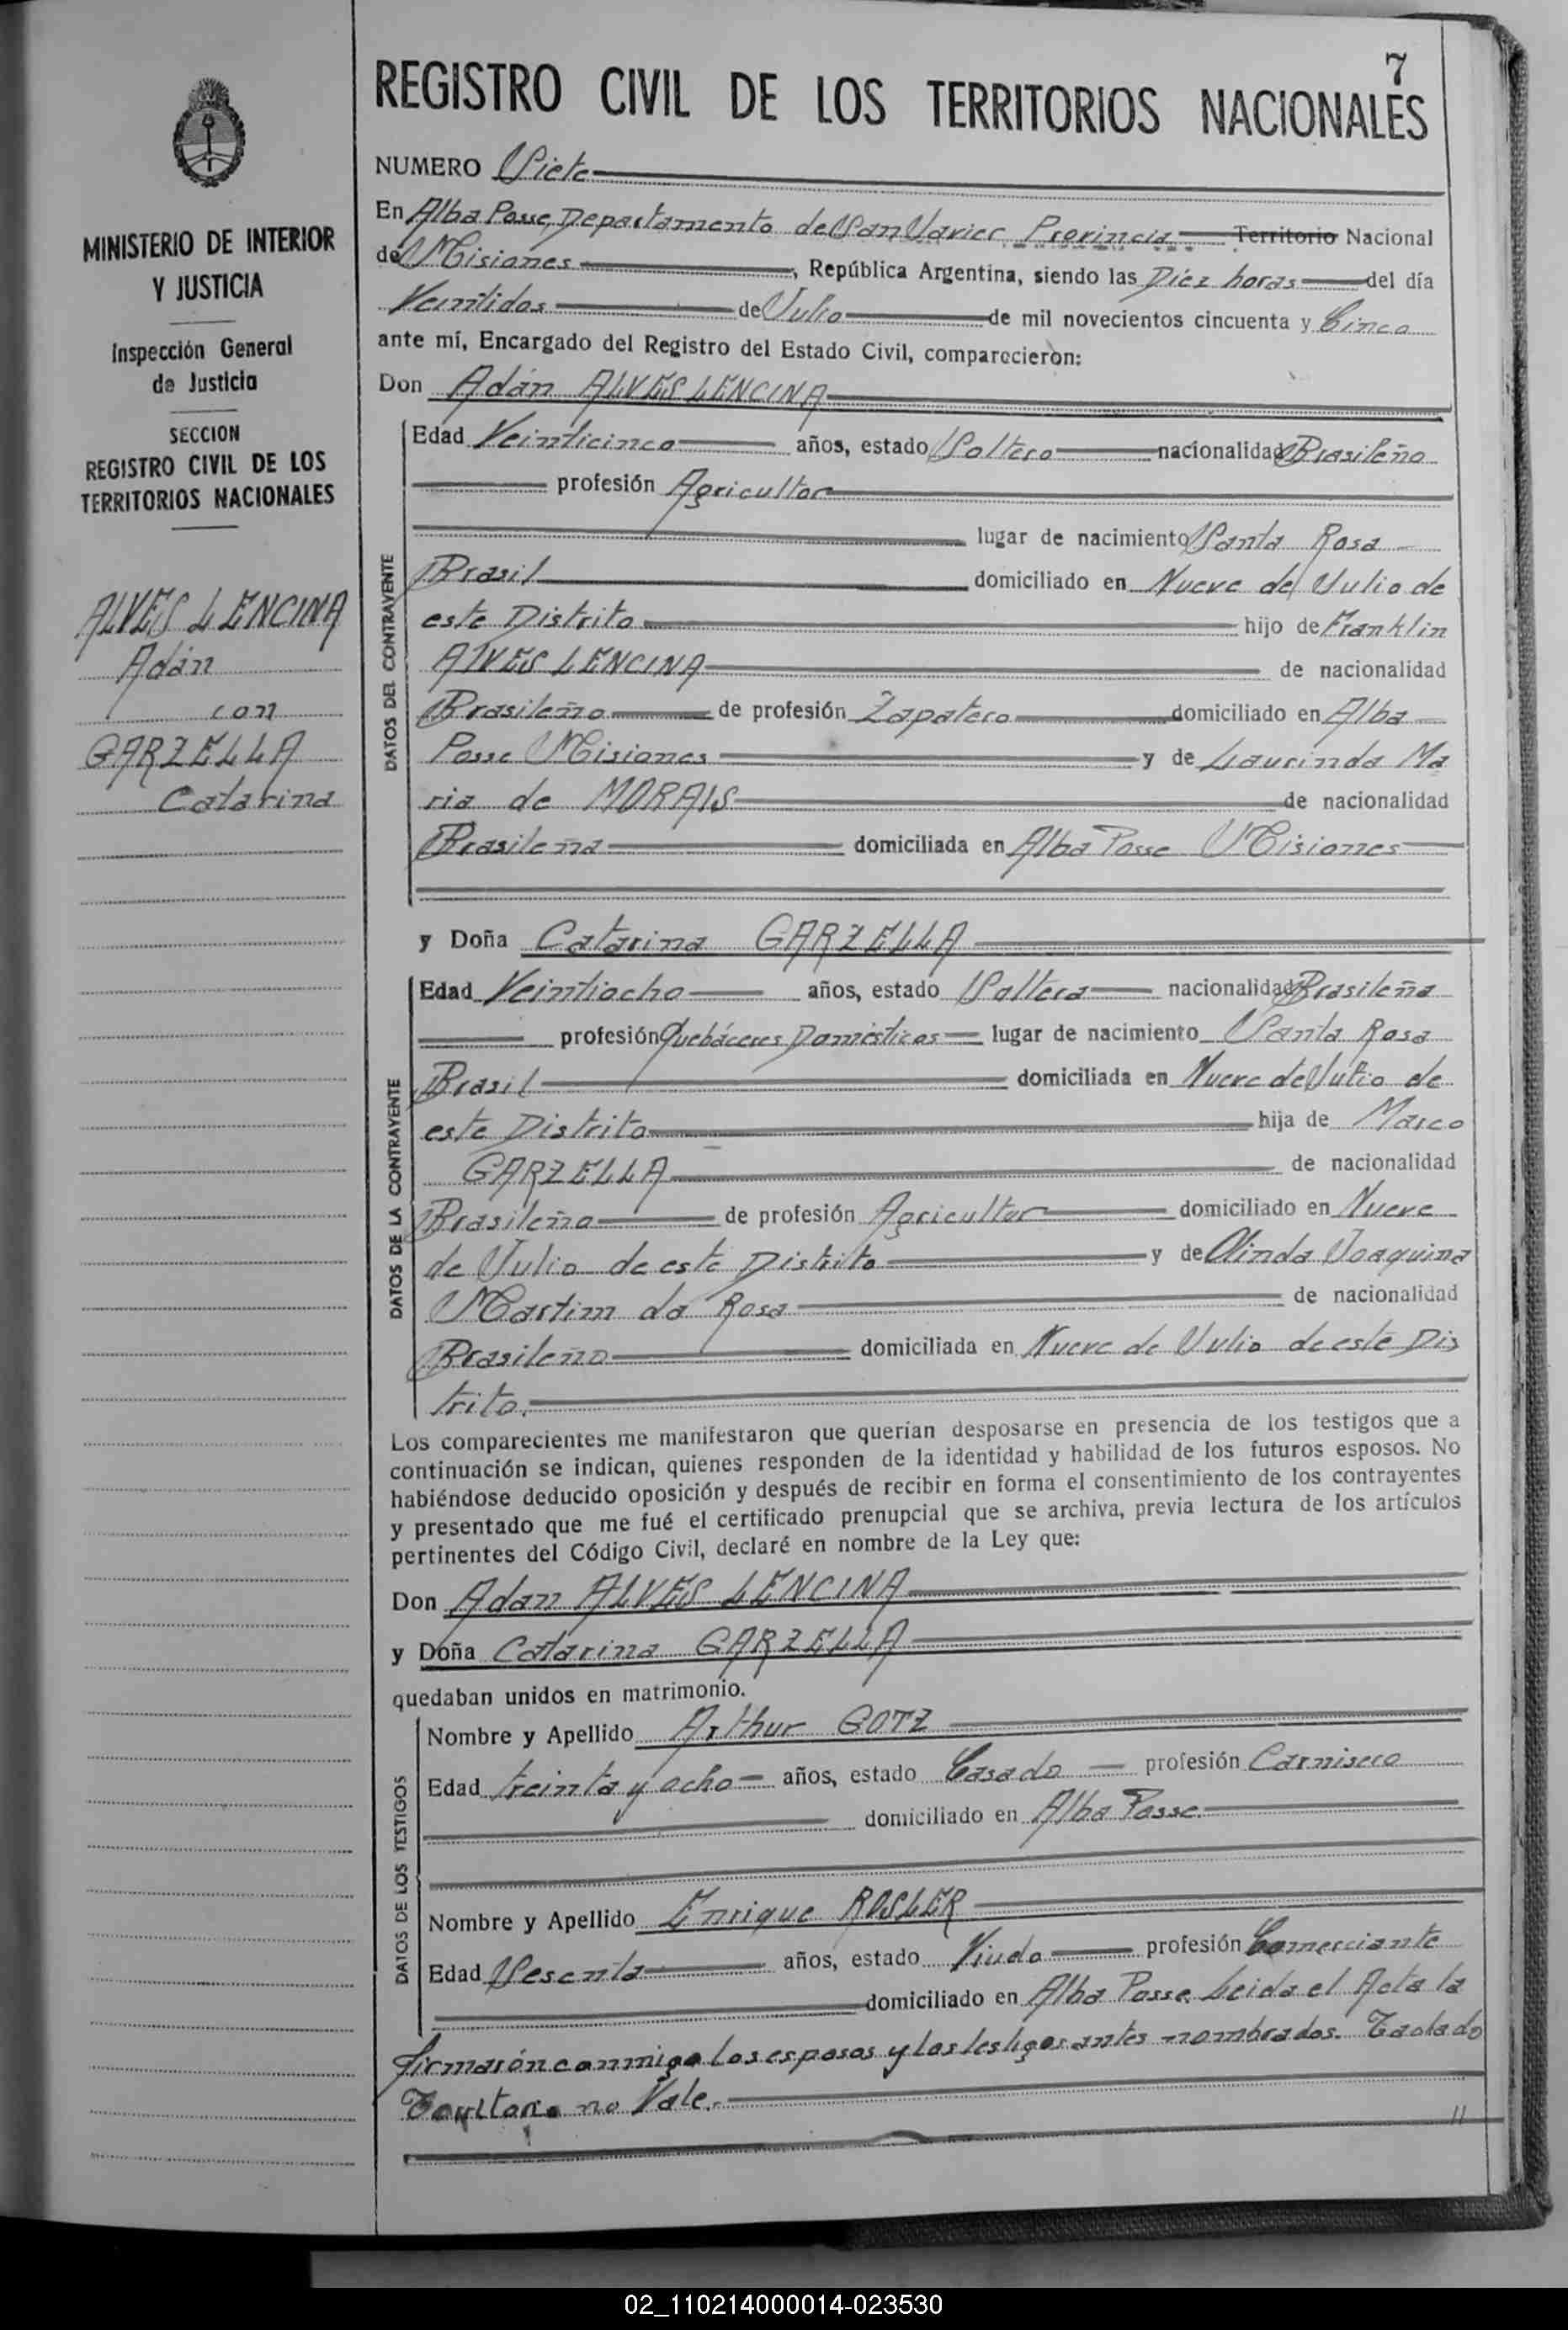 7
REGISTRO CIVIL DE LOS TERRITORIOS NACIONALES
MINISTERIO DE INTERIOR
Y JUSTICIA
Inspección General
de Justicia
SECCION
REGISTRO CIVIL DE LOS
TERRITORIOS NACIONALES
ALVES LENCINA
Adán
con
GARZELLA
Catarina
NUMERO Siete
En Alba Posse, Departamento de San Javier Provincia Territorio Nacional
de Misiones, República Argentina, siendo las Diez horas del día
Veintidos de Julio de mil novecientos cincuenta y Cinco
ante mí, Encargado del Registro del Estado Civil, comparecieron:
Don Adán ALVES LENCINA
DATOS DEL CONTRAYENTE
Edad Veinticinco años, estado Soltero nacionalidad Brasileño
profesión Agricultor
lugar de nacimiento Santa Rosa
Brasil domiciliado en Nueve de Julio de
este Distrito hijo de Franklin
ALVES LENCINA de nacionalidad
Brasileño de profesión Zapatero domiciliado en Alba
Posse Misiones y de Laurinda Ma
ria de MORAIS de nacionalidad
Brasileña domiciliada en Alba Posse Misiones
y Doña Catarina GARZELLA
DATOS DE LA CONTRAYENTE
Edad Veintiocho años, estado Soltera nacionalidad Brasileña
profesión Quehàceres Domésticos lugar de nacimiento Santa Rosa
Brasil domiciliada en Nueve de Julio de
este Distrito hija de Marco
GARZELLA de nacionalidad
Brasileño de profesión Agricultor domiciliado en Nueve
de Julio de este Distrito y de Olinda Joaquina
Martim da Rosa de nacionalidad
Brasileño domiciliada en Nueve de Julio de este Dis
trito.
Los comparecientes me manifestaron que querían desposarse en presencia de los testigos que a
continuación se indican, quienes responden de la identidad y habilidad de los futuros esposos. No
habiéndose deducido oposición y después de recibir en forma el consentimiento de los contrayentes
y presentado que me fué el certificado prenupcial que se archiva, previa lectura de los artículos
pertinentes del Código Civil, declaré en nombre de la Ley que:
Don Adan ALVES LENCINA
y Doña Catarina GARZELLA
quedaban unidos en matrimonio.
DATOS DE LOS TESTIGOS
Nombre y Apellido Arthur GOTZ
Edad treinta y ocho años, estado Casado profesión Carnisero
domiciliado en Alba Posse
Nombre y Apellido Enrique ROSLER
Edad Sesenta años, estado Viudo profesión Comerciante
domiciliado en Alba Posse. Leida el Acta la
firmarón conmigo los esposos y los testigos antes nombrados. Tadado
no Vale.
02_110214000014-023530